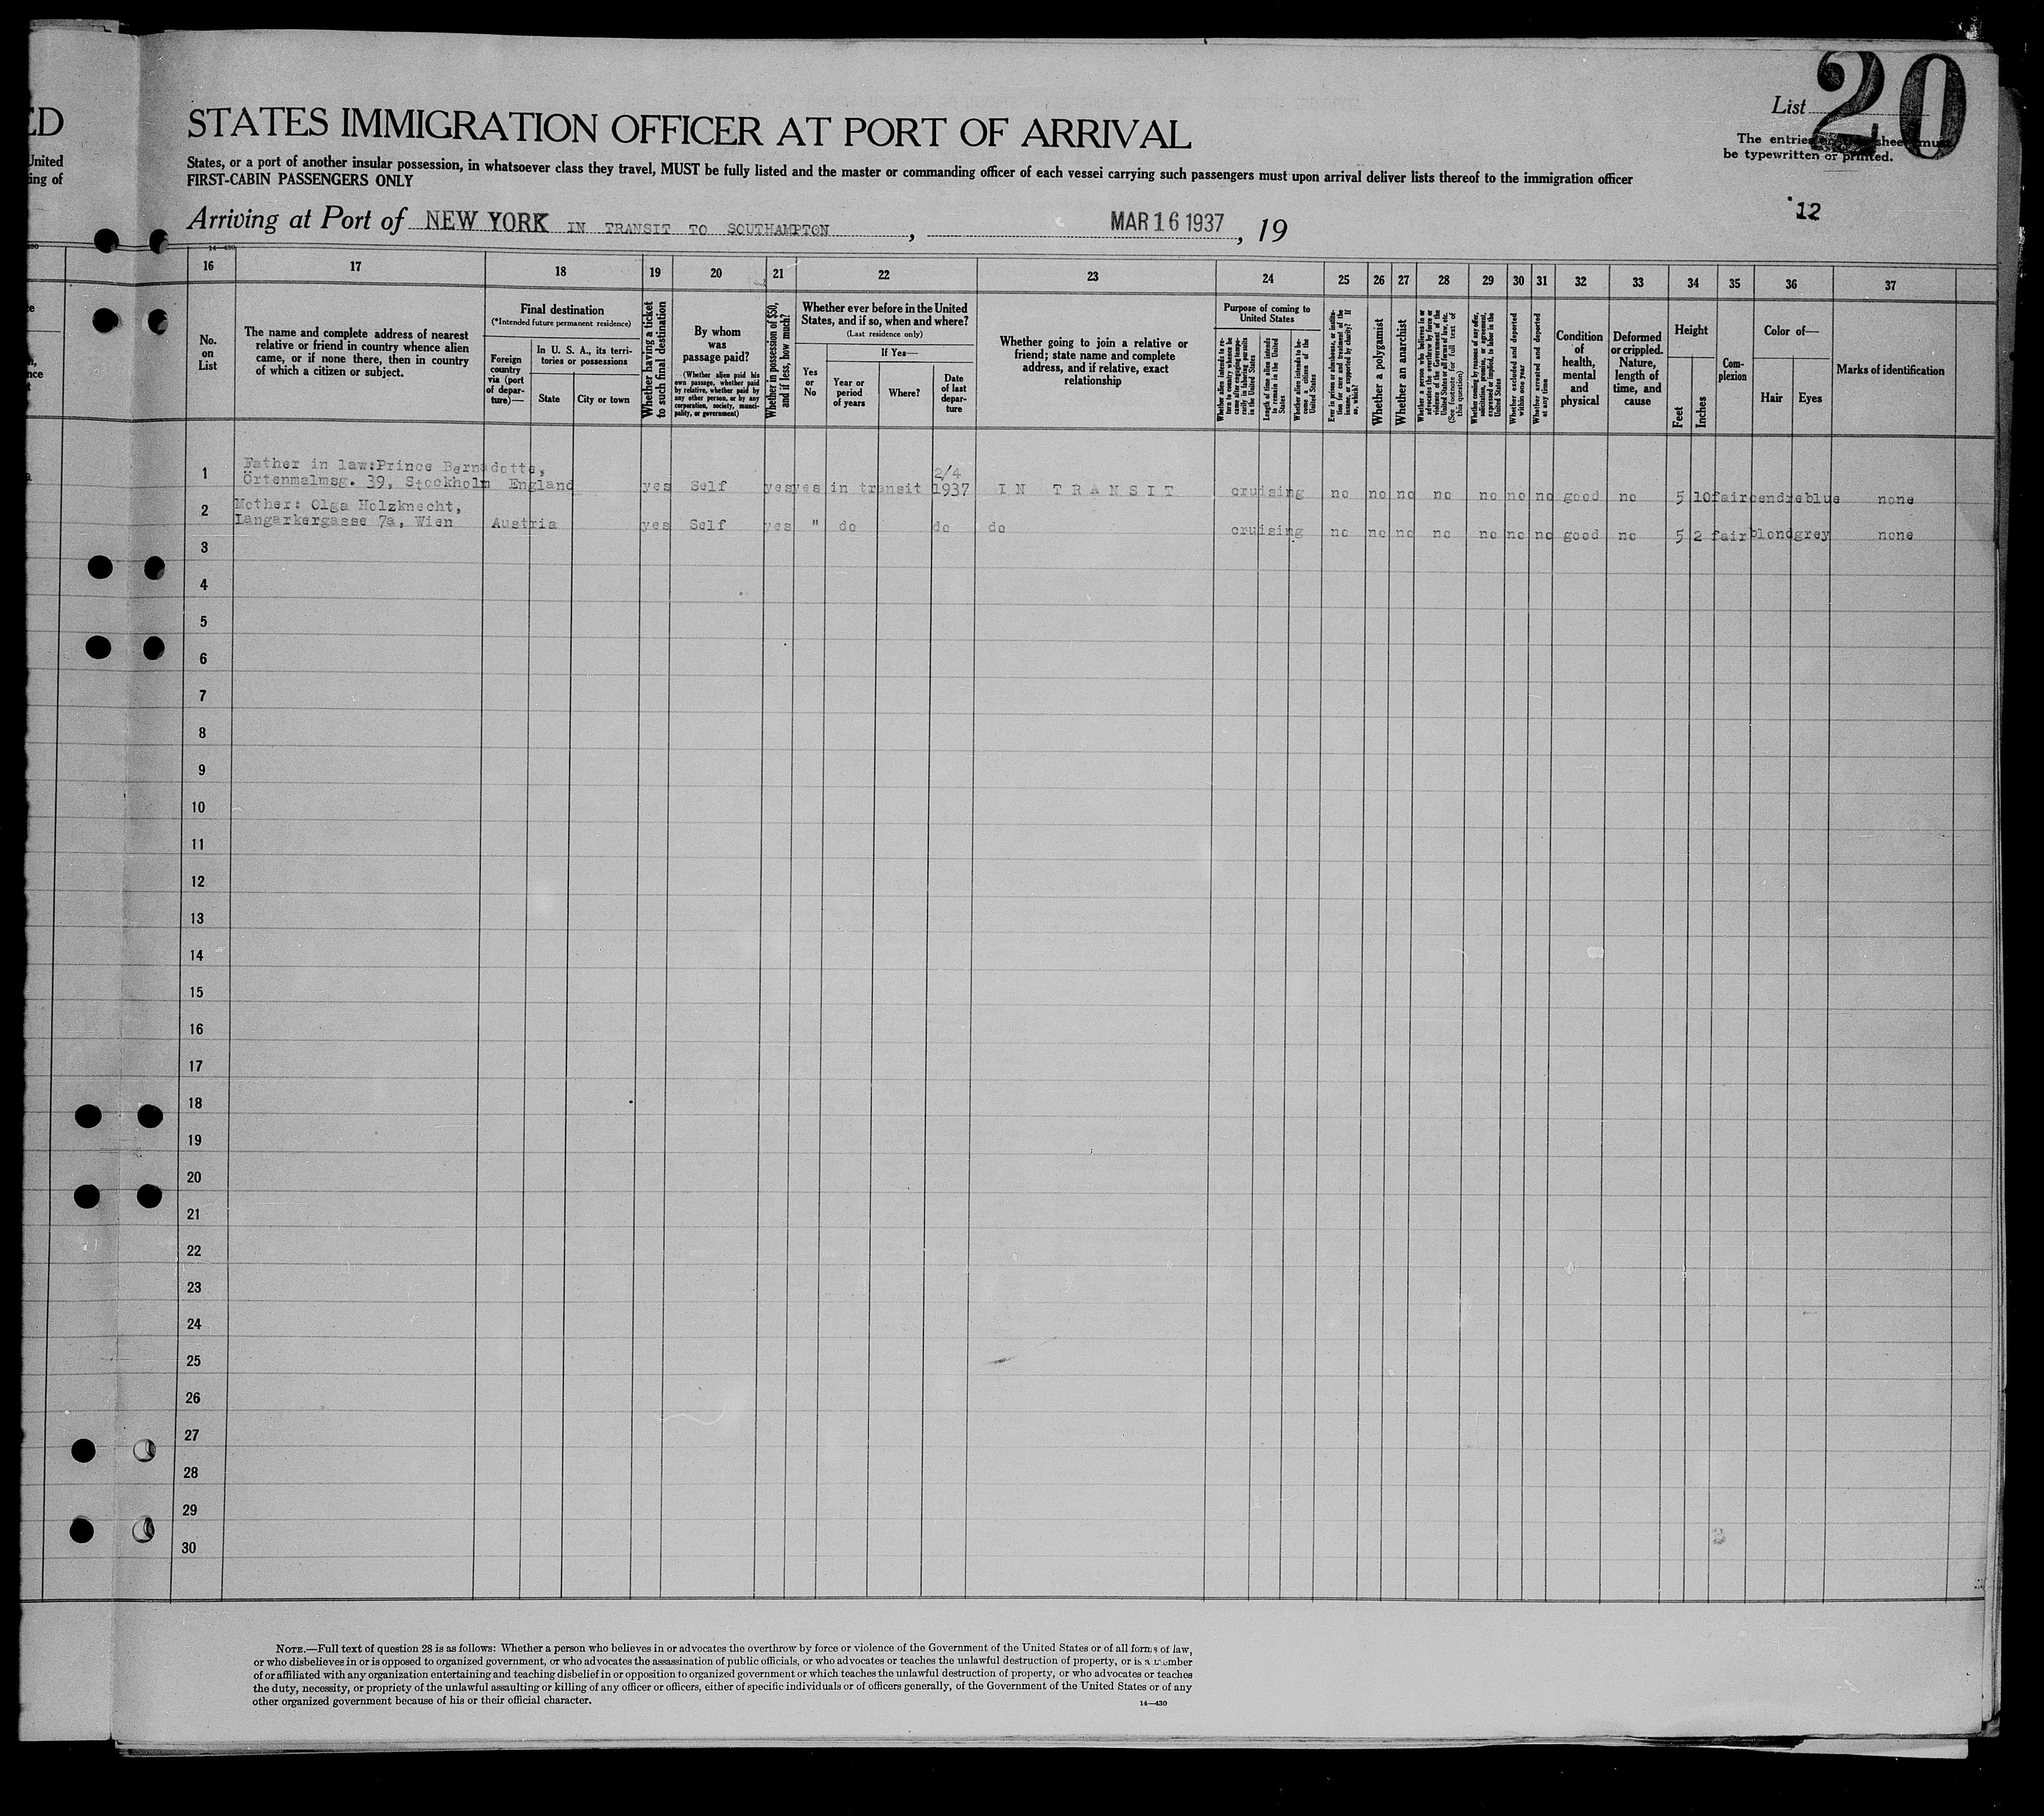 ED
United
ing of
List 20
STATES IMMIGRATION OFFICER AT PORT OF ARRIVAL
The entries sheet must
be typewritten or printed.
States, or a port of another insular possession, in whatsoever class they travel, MUST be fully listed and the master or commanding officer of each vessel carrying such passengers must upon arrival deliver lists thereof to the immigration officer
FIRST-CABIN PASSENGERS ONLY
12
Arriving at Port of NEW YORK IN TRANSIT TO SOUTHAMPTON, MAR 16 1937, 19
14-430
16 17 18 19 20 21 22 23 24 25 26 27 28 29 30 31 32 33 34 35 36 37
No. on List
The name and complete address of nearest relative or friend in country whence alien came, or if none there, then in country of which a citizen or subject.
Final destination
(*Intended future permanent residence)
Foreign country via (port of departure)—
In U. S. A., its territories or possessions
State
City or town
Whether having a ticket to such final destination
By whom was passage paid?
(Whether alien paid his own passage, whether paid by relative, whether paid by any other person, or by any corporation, society, municipality, or government)
Whether in possession of $50, and if less, how much?
Whether ever before in the United States, and if so, when and where?
(Last residence only)
Yes or No
If Yes—
Year or period of years
Where?
Date of last departure
Whether going to join a relative or friend; state name and complete address, and if relative, exact relationship
Purpose of coming to United States
Whether alien intends to return to country whence he came after engaging temporarily in laboring pursuits in the United States
Length of time alien intends to remain in the United States
Whether alien intends to become a citizen of the United States
Ever in prison or almshouse, or institution for care and treatment of the insane, or supported by charity? If so, which?
Whether a polygamist
Whether an anarchist
Whether a person who believes in or advocates the overthrow by force or violence of the Government of the United States or all forms of law, etc. (See footnote for full text of this question)
Whether coming by reason of any offer, solicitation, promise, or agreement, expressed or implied, to labor in the United States
Whether excluded and deported within one year
Whether arrested and deported at any time
Condition of health, mental and physical
Deformed or crippled. Nature, length of time, and cause
Height
Feet
Inches
Complexion
Color of—
Hair
Eyes
Marks of identification
1 Father in law:Prince Bernadotte,
Örtenmalmsg. 39, Stockholm England yes Self yes yes in transit 2/4 1937 IN TRANSIT cruising no no no no no no no good no 5 10 fair cendre blue none
2 Mother: Olga Holzknecht,
Langarkergasse 7a, Wien Austria yes Self yes " do do do cruising no no no no no no no good no 5 2 fair blond grey none
3
4
5
6
7
8
9
10
11
12
13
14
15
16
17
18
19
20
21
22
23
24
25
26
27
28
29
30
NOTE.—Full text of question 28 is as follows: Whether a person who believes in or advocates the overthrow by force or violence of the Government of the United States or of all forms of law,
or who disbelieves in or is opposed to organized government, or who advocates the assassination of public officials, or who advocates or teaches the unlawful destruction of property, or is a member
of or affiliated with any organization entertaining and teaching disbelief in or opposition to organized government or which teaches the unlawful destruction of property, or who advocates or teaches
the duty, necessity, or propriety of the unlawful assaulting or killing of any officer or officers, either of specific individuals or of officers generally, of the Government of the United States or of any
other organized government because of his or their official character.
14—430